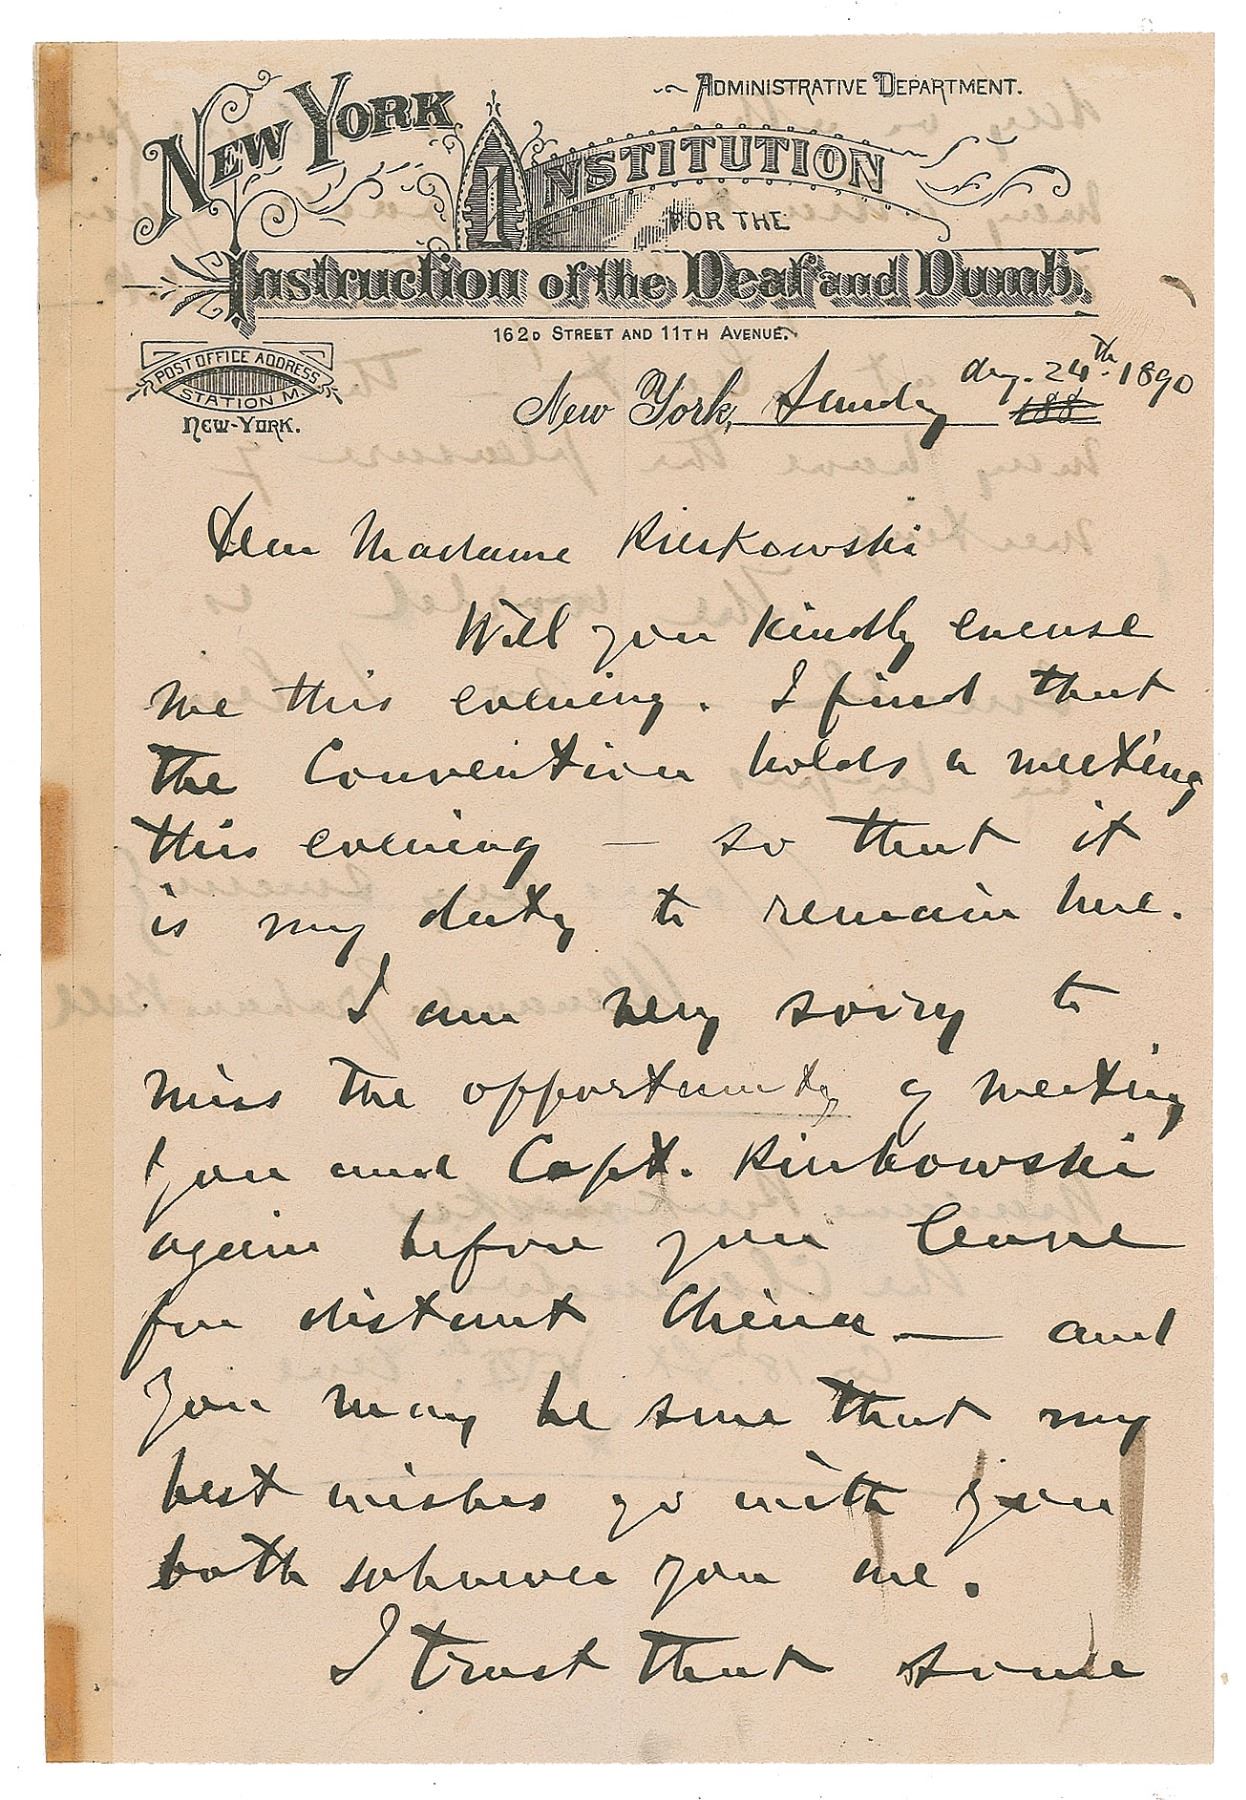 ADMINISTRATIVE DEPARTMENT.
NEW YORK
INSTITUTION
FOR THE
Instruction of the Deaf and Dumb.
162D STREET AND 11TH AVENUE.
POST OFFICE ADDRESS
STATION M.
NEW-YORK.
Aug. 24th 1890
New York, Sunday 188
Dear Madame Kierkowski
Will you kindly excuse
me this evening. I find that
the Convention holds a meeting
this evening — so that it
is my duty to remain here.
I am very sorry to
miss the opportunity of meeting
you and Capt. Kirkowski
again before you leave
for distant China — and
you may be sure that my
best wishes go with you
both wherever you are.
I trust that some